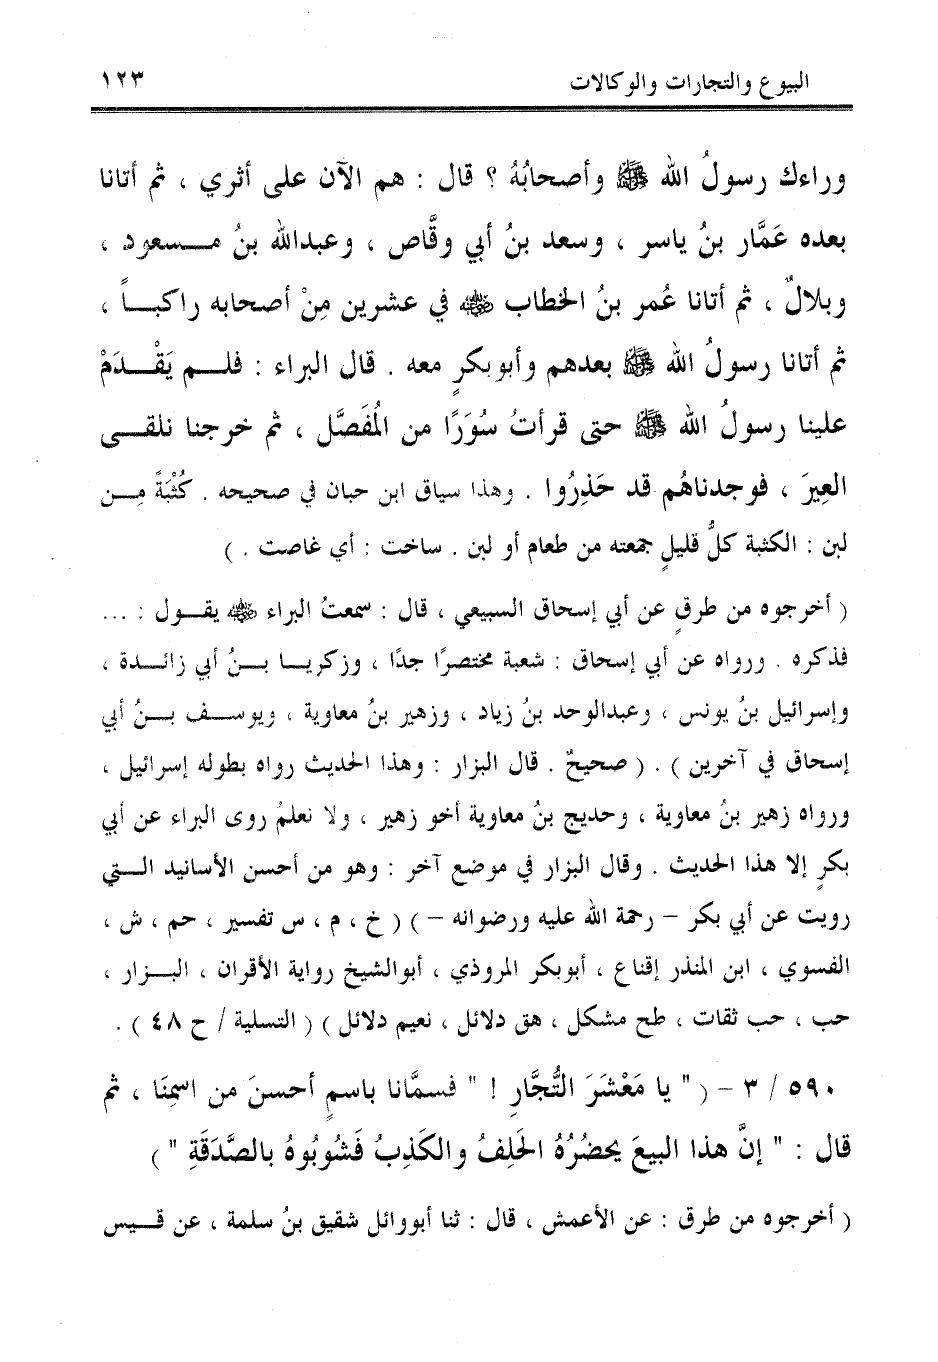 البيوع والتجارات والوكالات ١٢٣
وراءك رسولُ الله ﷺ وأصحابُهُ ؟ قال : هم الآن على أثري ، ثم أتانا
بعده عَمَّار بنُ ياسر ، وسعد بنُ أبي وقَّاص ، وعبدالله بنُ مسعود ،
وبلالٌ ، ثم أتانا عُمر بنُ الخطاب رضي الله عنه في عشرين مِنْ أصحابه راكباً ،
ثم أتانا رسولُ الله ﷺ بعدهم وأبوبكرٍ معه . قال البراء : فلم يَقْدَمْ
علينا رسولُ الله ﷺ حتى قرأتُ سُوَرًا من المُفَصَّل ، ثم خرجنا نلقى
العِيرَ ، فوجدناهُم قد حَذِرُوا . وهذا سياق ابن حبان في صحيحه . كُثْبَةً مِن
لبن : الكثبة كلُّ قليلٍ جمعته من طعام أو لبن . ساخت : أي غاصت . )
( أخرجوه من طرقٍ عن أبي إسحاق السبيعي ، قال : سمعتُ البراء رضي الله عنه يقول : ...
فذكره . ورواه عن أبي إسحاق : شعبة مختصرًا جدًا ، وزكريا بنُ أبي زائدة ،
وإسرائيل بنُ يونس ، وعبدالواحد بنُ زياد ، وزهير بنُ معاوية ، ويوسف بنُ أبي
إسحاق في آخرين ) . ( صحيحٌ . قال البزار : وهذا الحديث رواه بطوله إسرائيل ،
ورواه زهير بنُ معاوية ، وحديج بنُ معاوية أخو زهير ، ولا نعلمُ روى البراء عن أبي
بكرٍ إلا هذا الحديث . وقال البزار في موضع آخر : وهو من أحسن الأسانيد التي
رويت عن أبي بكر – رحمة الله عليه ورضوانه – ) ( خ ، م ، س تفسير ، حم ، ش ،
الفسوي ، ابن المنذر إقناع ، أبوبكر المروذي ، أبوالشيخ رواية الأقران ، البزار ،
حب ، حب ثقات ، طح مشكل ، هق دلائل ، نعيم دلائل ) ( التسلية / ح ٤٨ ) .
٥٩٠ / ٣ – ( " يا مَعْشَرَ التُّجَّارِ ! " فسمَّانا باسمٍ أحسنَ من اسمِنَا ، ثم
قال : " إنَّ هذا البيعَ يحضُرُهُ الحَلِفُ والكَذِبُ فَشُوبُوهُ بالصَّدَقَةِ " )
( أخرجوه من طرق : عن الأعمش ، قال : ثنا أبووائل شقيق بنُ سلمة ، عن قيس